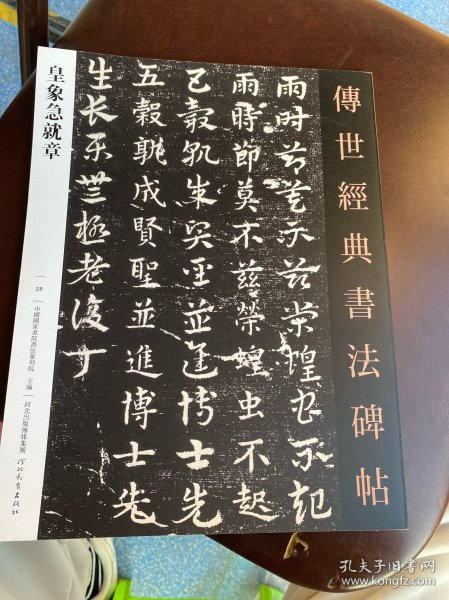 傳世經典書法碑帖
雨時節莫不茲榮蝗虫不起
雨時節莫不茲榮蝗虫不起
五穀孰成賢聖並進博士先
五穀孰成賢聖並進博士先
生長樂無極老復丁
皇象急就章
28
中國國家畫院書法篆刻院 主編
河北出版傳媒集團
河北教育出版社
孔夫子旧书网
www.kongfz.com